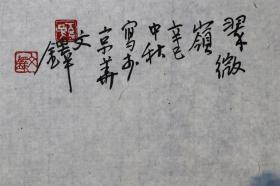 翠微
嶺
辛巳
中秋
寫於
京華
文
鐸